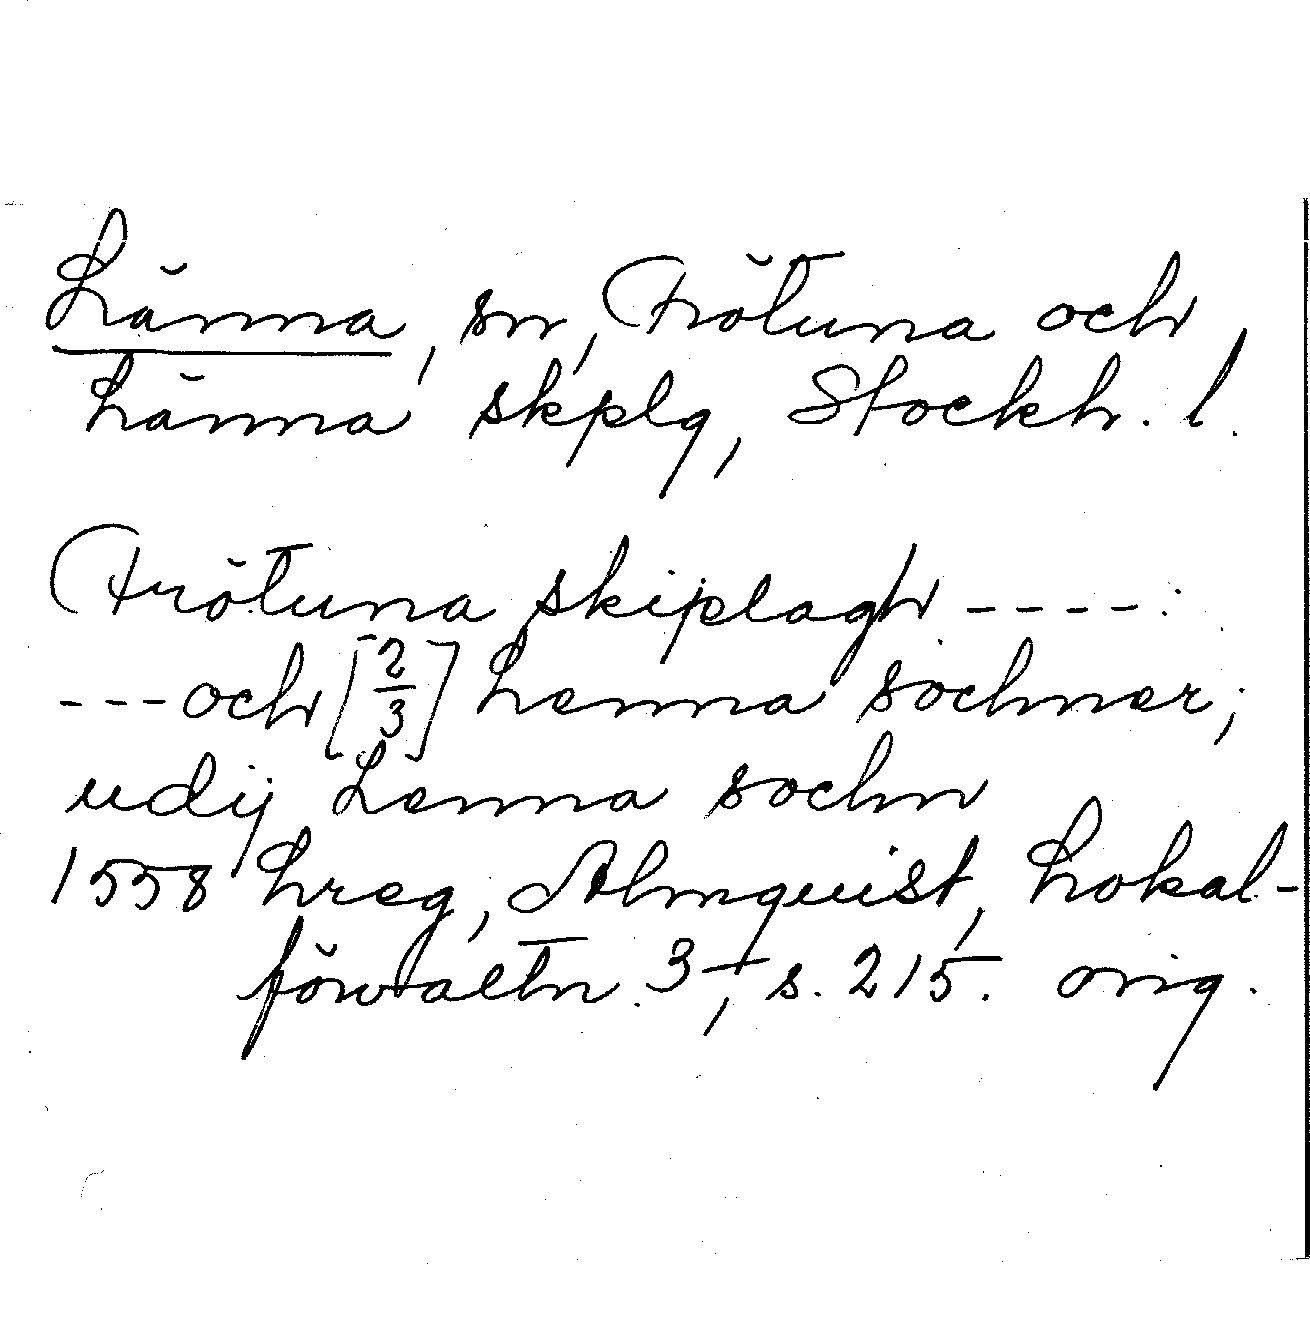 Länna, sn, Frötuna och
Länna skplg, Stockh. l.
Frötuna skiplagh ----:
---och [2/3] Lenna sochner;
udij Lenna sochn
1558 Lreg, Almquist, Lokal-
förvaltn. 3, s. 215. orig.